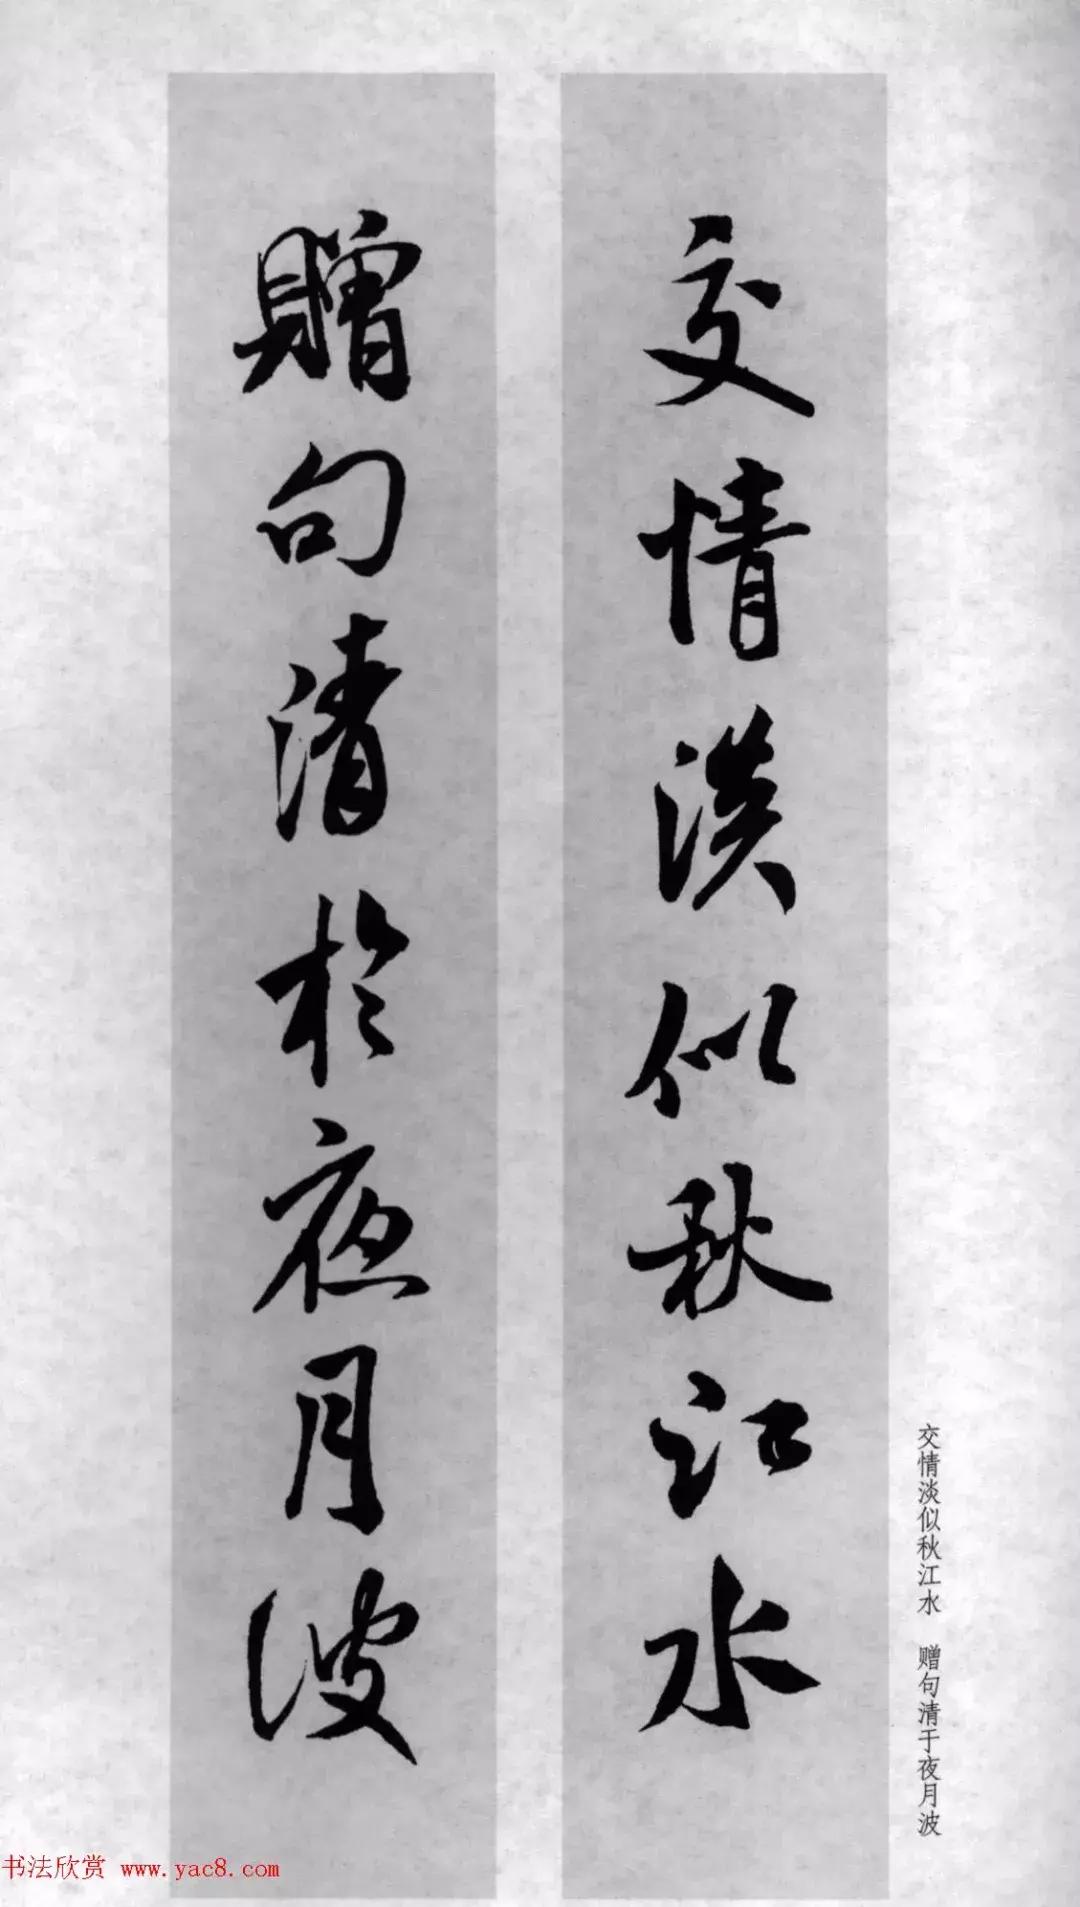 交情淡似秋江水
贈句清於夜月波
交情淡似秋江水　赠句清于夜月波
书法欣赏 www.yac8.com